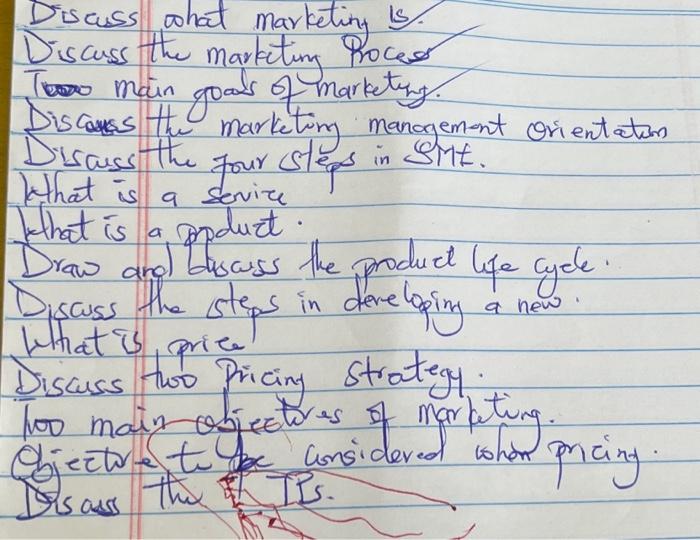 Discuss what marketing is.
Discuss the marketing Process
Two main goals of marketing.
Discuss the marketing management orientation
Discuss the four steps in SME.
What is a service
What is a product.
Draw and discuss the product life cycle.
Discuss the steps in developing a new.
What is price
Discuss two Pricing Strategy.
Two main objectives of marketing.
Objective to be considered when pricing.
Discuss the